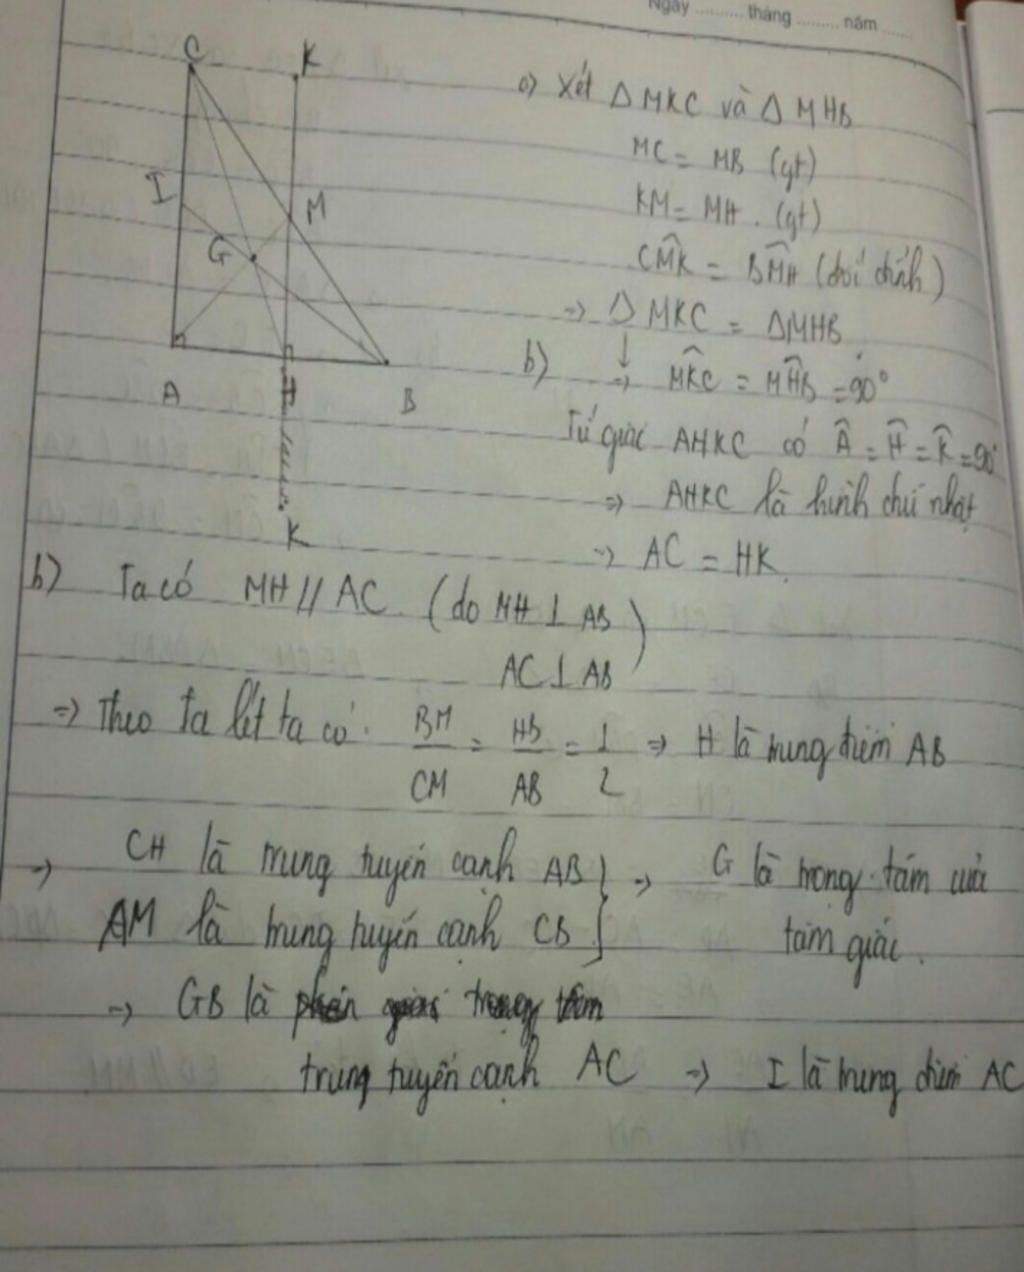 Ngày ......... tháng ......... năm ......
C
K
I
M
G
A
H
B
K
a) Xét Δ MKC và Δ MHB
MC = MB (gt)
KM = MH . (gt)
CM̂K = BM̂H (đối đỉnh)
=> Δ MKC = ΔMHB
b) ↓ => MK̂C = MĤB = 90°
Tứ giác AHKC có Â = Ĥ = K̂ = 90°
=> AHKC là hình chữ nhật
=> AC = HK.
b) Ta có MH // AC (do MH ⊥ AB
AC ⊥ AB)
=> Theo ta lét ta có. BM/CM = HB/AB = 1/2 => H là trung điểm AB
=> CH là trung tuyến cạnh AB } => G là trọng tâm của
AM là trung tuyến cạnh CB } tam giác.
=> GB là
trung tuyến cạnh AC => I là trung điểm AC